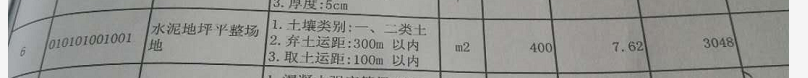 3.厚度:5cm
6
010101001001
水泥地坪平整场
地
1.土壤类别:一、二类土
2.弃土运距:300m 以内
3.取土运距:100m 以内
m2
400
7.62
3048